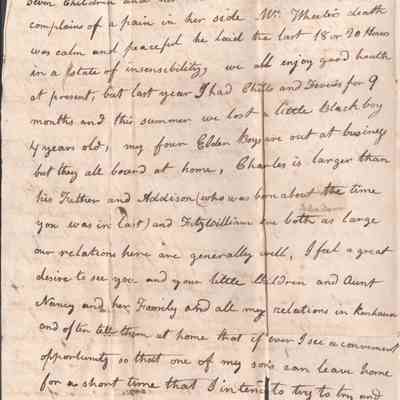 Seven Children and her
complains of a pain in her side Mr. Wheeler's death
was calm and peaceful he laid the last 18 or 20 Hours
in a State of insensibility, we all enjoy good health
at present, but last year I had Chills and Fevers for 9
months and this summer we lost a little Black boy
4 years old, my four Elder Boys are out at business
but they all board at home, Charles is larger than
his Father and Addison (who was born about the time
you was in last) and Fitzwilliam are both as large
our relations here are generally well, I feel a great
desire to see you and your little Children and Aunt
Nancy and her Family and all my relations in Kanhawa
and often tell them at home that if ever I see a convenient
opportunity so that one of my sons can leave home
for a short time that I intend to try to and